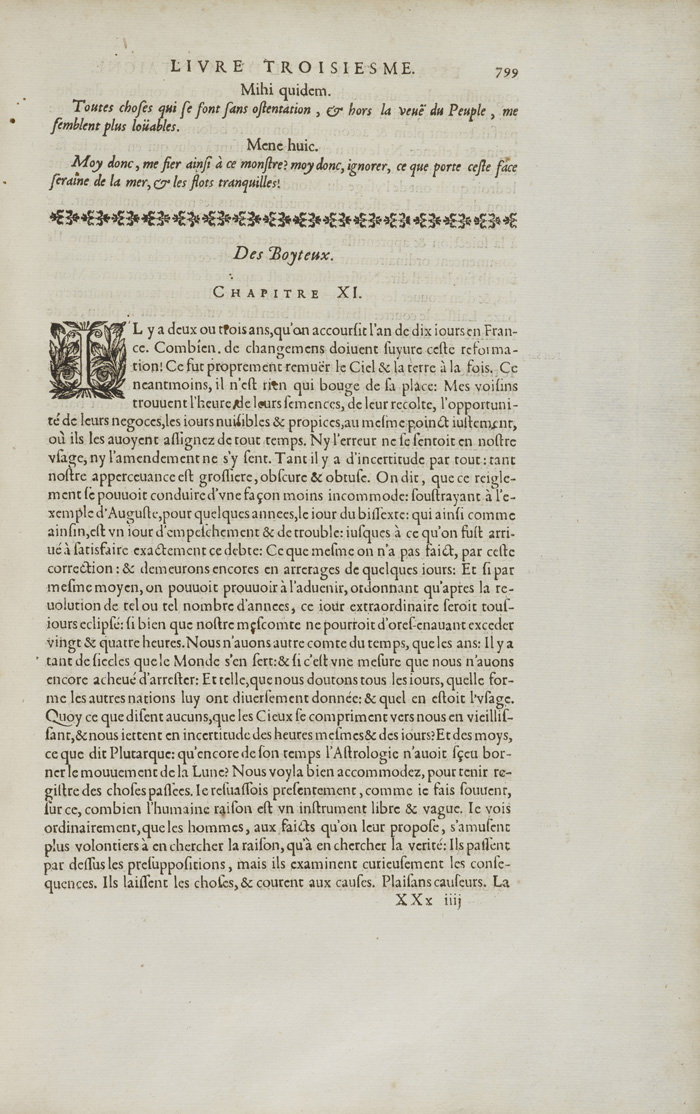 LIVRE TROISIESME. 799
Mihi quidem.
Toutes choses qui se font sans ostentation, & hors la veuë du Peuple, me
semblent plus loüables.
Mene huic.
Moy donc, me fier ainsi à ce monstre? moy donc, ignorer, ce que porte ceste face
seraine de la mer, & les flots tranquilles!
Des Boyteux.
CHAPITRE XI.
IL y a deux ou trois ans, qu'on accoursit l'an de dix iours en Fran-
ce. Combien de changemens doiuent suyure ceste reforma-
tion! Ce fut proprement remuër le Ciel & la terre à la fois. Ce
neantmoins, il n'est rien qui bouge de sa place: Mes voisins
trouuent l'heure de leurs semences, de leur recolte, l'opportuni-
té de leurs negoces, les iours nuisibles & propices, au mesme poinct iustement,
où ils les auoyent assignez de tout temps. Ny l'erreur ne se sentoit en nostre
vsage, ny l'amendement ne s'y sent. Tant il y a d'incertitude par tout: tant
nostre apperceuance est grossiere, obscure & obtuse. On dit, que ce reigle-
ment se pouuoit conduire d'vne façon moins incommode: soustrayant à l'e-
xemple d'Auguste, pour quelques annees, le iour du bissexte: qui ainsi comme
ainsin, est vn iour d'empeschement & de trouble: iusques à ce qu'on fust arri-
ué à satisfaire exactement ce debte: Ce que mesme on n'a pas faict, par ceste
correction: & demeurons encores en arrerages de quelques iours: Et si par
mesme moyen, on pouuoit prouuoir à l'aduenir, ordonnant qu'apres la re-
uolution de tel ou tel nombre d'annees, ce iour extraordinaire seroit tous-
iours eclipsé: si bien que nostre mescomte ne pourroit d'ores-enauant exceder
vingt & quatre heures. Nous n'auons autre comte du temps, que les ans: Il y a
tant de siecles que le Monde s'en sert: & si c'est vne mesure que nous n'auons
encore acheué d'arrester: Et telle, que nous doutons tous les iours, quelle for-
me les autres nations luy ont diuersement donnée: & quel en estoit l'vsage.
Quoy ce que disent aucuns, que les Cieux se compriment vers nous en vieillis-
sant, & nous iettent en incertitude des heures mesmes & des iours? Et des moys,
ce que dit Plutarque: qu'encore de son temps l'Astrologie n'auoit sçeu bor-
ner le mouuement de la Lune? Nous voyla bien accommodez, pour tenir re-
gistre des choses passées. Ie resuassois presentement, comme ie fais souuent,
sur ce, combien l'humaine raison est vn instrument libre & vague. Ie vois
ordinairement, que les hommes, aux faicts qu'on leur propose, s'amusent
plus volontiers à en chercher la raison, qu'à en chercher la verité: Ils passent
par dessus les presuppositions, mais ils examinent curieusement les conse-
quences. Ils laissent les choses, & courent aux causes. Plaisans causeurs. La
XXx iiij